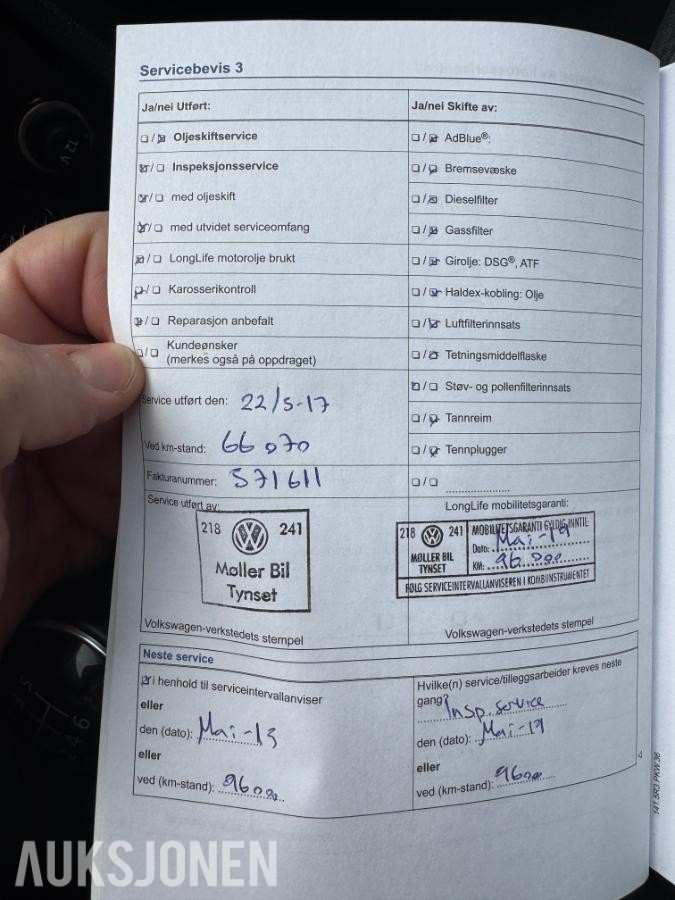 Servicebevis 3
Ja/nei Utført:
/ Oljeskiftservice
/ Inspeksjonsservice
/ med oljeskift
/ med utvidet serviceomfang
/ LongLife motorolje brukt
/ Karosserikontroll
/ Reparasjon anbefalt
/ Kundeønsker
(merkes også på oppdraget)
Service utført den: 22/5-17
Ved km-stand: 66 070
Fakturanummer: 571611
Service utført av:
218 241
Møller Bil
Tynset
Volkswagen-verkstedets stempel
Ja/nei Skifte av:
/ AdBlue®:
/ Bremsevæske
/ Dieselfilter
/ Gassfilter
/ Girolje: DSG®, ATF
/ Haldex-kobling: Olje
/ Luftfilterinnsats
/ Tetningsmiddelflaske
/ Støv- og pollenfilterinnsats
/ Tannreim
/ Tennplugger
/ ....................
LongLife mobilitetsgaranti:
218 241 MOBILITETSGARANTI GYLDIG INNTIL
Dato: Mai-19
MØLLER BIL
TYNSET
KM: 96.000
FØLG SERVICEINTERVALLANVISEREN I KOMBIINSTRUMENTET
Volkswagen-verkstedets stempel
Neste service
i henhold til serviceintervallanviser
eller
den (dato): Mai-19
eller
ved (km-stand): 96000
Hvilke(n) service/tilleggsarbeider kreves neste
gang? Insp. service
den (dato): Mai-19
eller
ved (km-stand): 96000
4
141.5R3.PKW.36
12V
5
4
6
AUKSJONEN